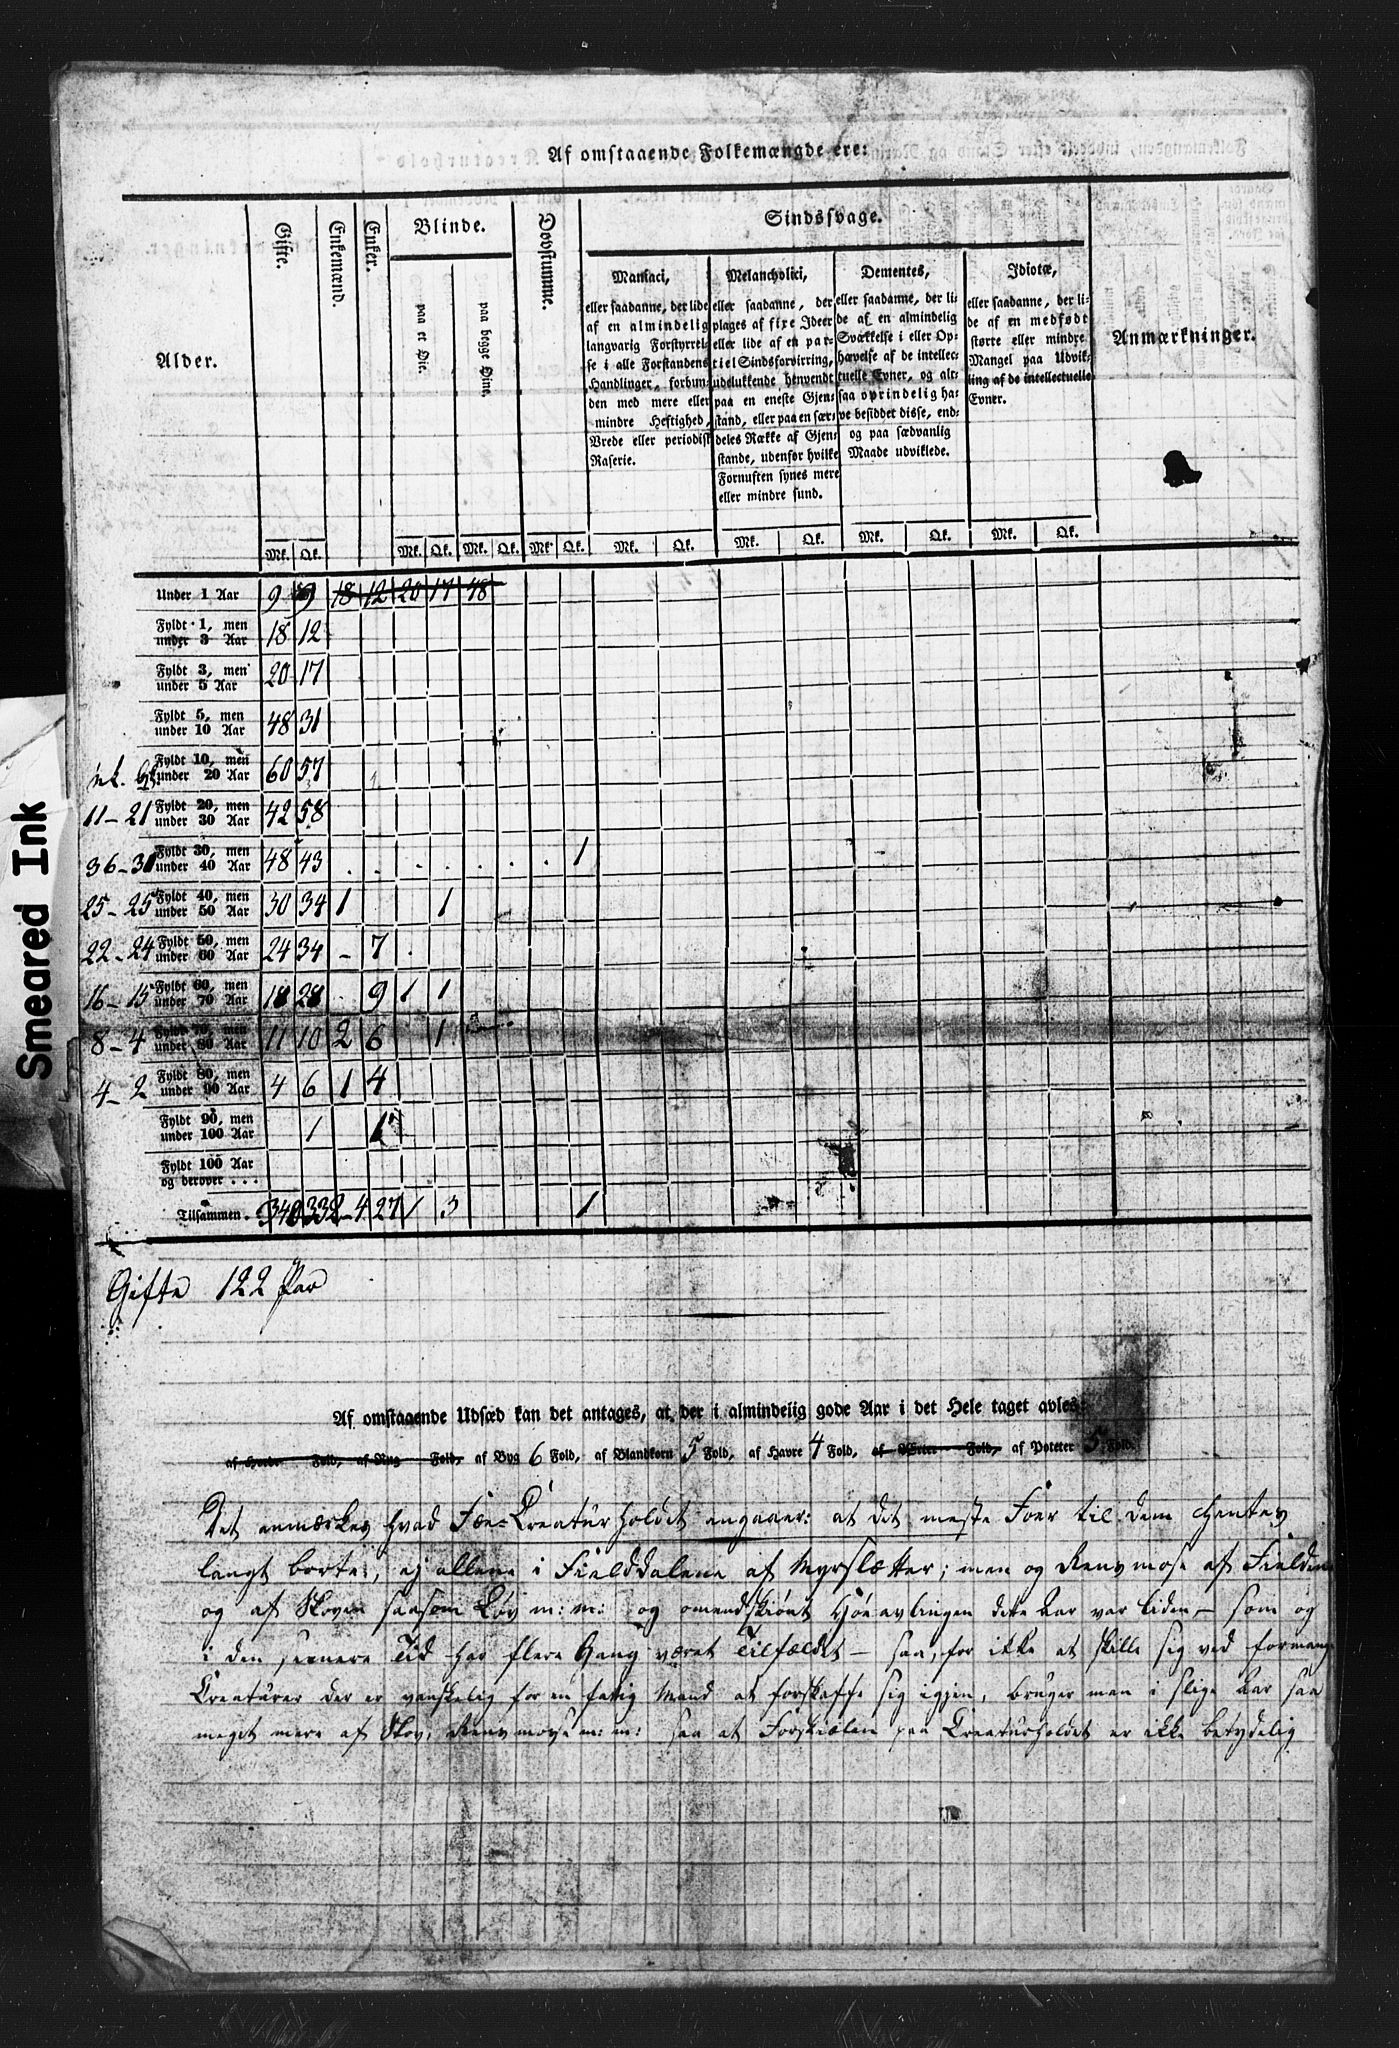 Af omstaaende Folkemængde ere:
Alder.
Gifte.
Enkemænd.
Enker.
Blinde.
paa et Øie.
paa begge Øine.
Døvstumme.
Sindssvage.
Maniaci,
eller saadanne, der lide
af en almindelig
langvarig Forstyrrel-
se i alle Forstandens
Handlinger, forbun-
den med mere eller
mindre Heftighed,
Vrede eller periodisk
Raserie.
Melancholici,
eller saadanne, der
plages af fixe Ideer
eller lide af en par-
tiel Sindsforvirring,
udelukkende henvendt
paa en eneste Gjen-
stand, eller paa en sær-
deles Række af Gjen-
stande, udenfor hvilke
Fornuften synes mere
eller mindre sund.
Dementes,
eller saadanne, der li-
de af en almindelig
Svækkelse i eller Op-
hævelse af de intellec-
tuelle Evner, og alt-
saa oprindelig ha-
ve besiddet disse, end-
og paa sædvanlig
Maade udviklede.
Idiotæ,
eller saadanne, der li-
de af en medfødt
større eller mindre
Mangel paa Udvik-
ling af de intellectuelle
Evner.
Anmærkninger.
Mk. Qk. Mk. Qk. Mk. Qk. Mk. Qk. Mk. Qk. Mk. Qk. Mk. Qk. Mk. Qk.
Under 1 Aar 9 9 18 12 20 17 48
Fyldt 1, men
under 3 Aar 18 12
Fyldt 3, men
under 5 Aar 20 17
Fyldt 5, men
under 10 Aar 48 31
Fyldt 10, men
under 20 Aar 60 57
11-21 Fyldt 20, men
under 30 Aar 42 58
36-31 Fyldt 30, men
under 40 Aar 48 43 . . . . . . . 1
25-25 Fyldt 40, men
under 50 Aar 30 34 1 1
22-24 Fyldt 50, men
under 60 Aar 24 34 - 7 .
16-15 Fyldt 60, men
under 70 Aar 18 28 9 1 1
8-4 Fyldt 70, men
under 80 Aar 11 10 2 6 1
4-2 Fyldt 80, men
under 90 Aar 4 6 1 4
Fyldt 90, men
under 100 Aar 1 1
Fyldt 100 Aar
og derover . . .
Tilsammen . 340 332 - 4 27 1 3 1
Smeared Ink
Gifte 122 Par
Af omstaaende Udsæd kan det antages, at der i almindelig gode Aar i det Hele taget avles:
af Hvede Fold, af Rug Fold, af Byg 6 Fold, af Blandkorn 5 Fold, af Havre 4 Fold, af Erter Fold, af Poteter 5 Fold.
Det anmærkes hvad Fæe-Creaturholdet angaaer: at det meste Foer til dem hentes
langt borte, ej allene i Fielddalene af Myrslætter; men og Renmose af Fieldene
og af Skoven saasom Løv m: m: og omendskiønt Høeavlingen dette Aar var liden - som og
i den senere Tid har flere Gang været Tilfældet - saa, for ikke at skille sig ved formange
Creaturer der er vanskelig for en fattig Mand at forskaffe sig igjen, bruger man i slige Aar saa
meget mere af Skov, Renmose m: m: saa at Forskiælen paa Creaturholdet er ikke betydelig